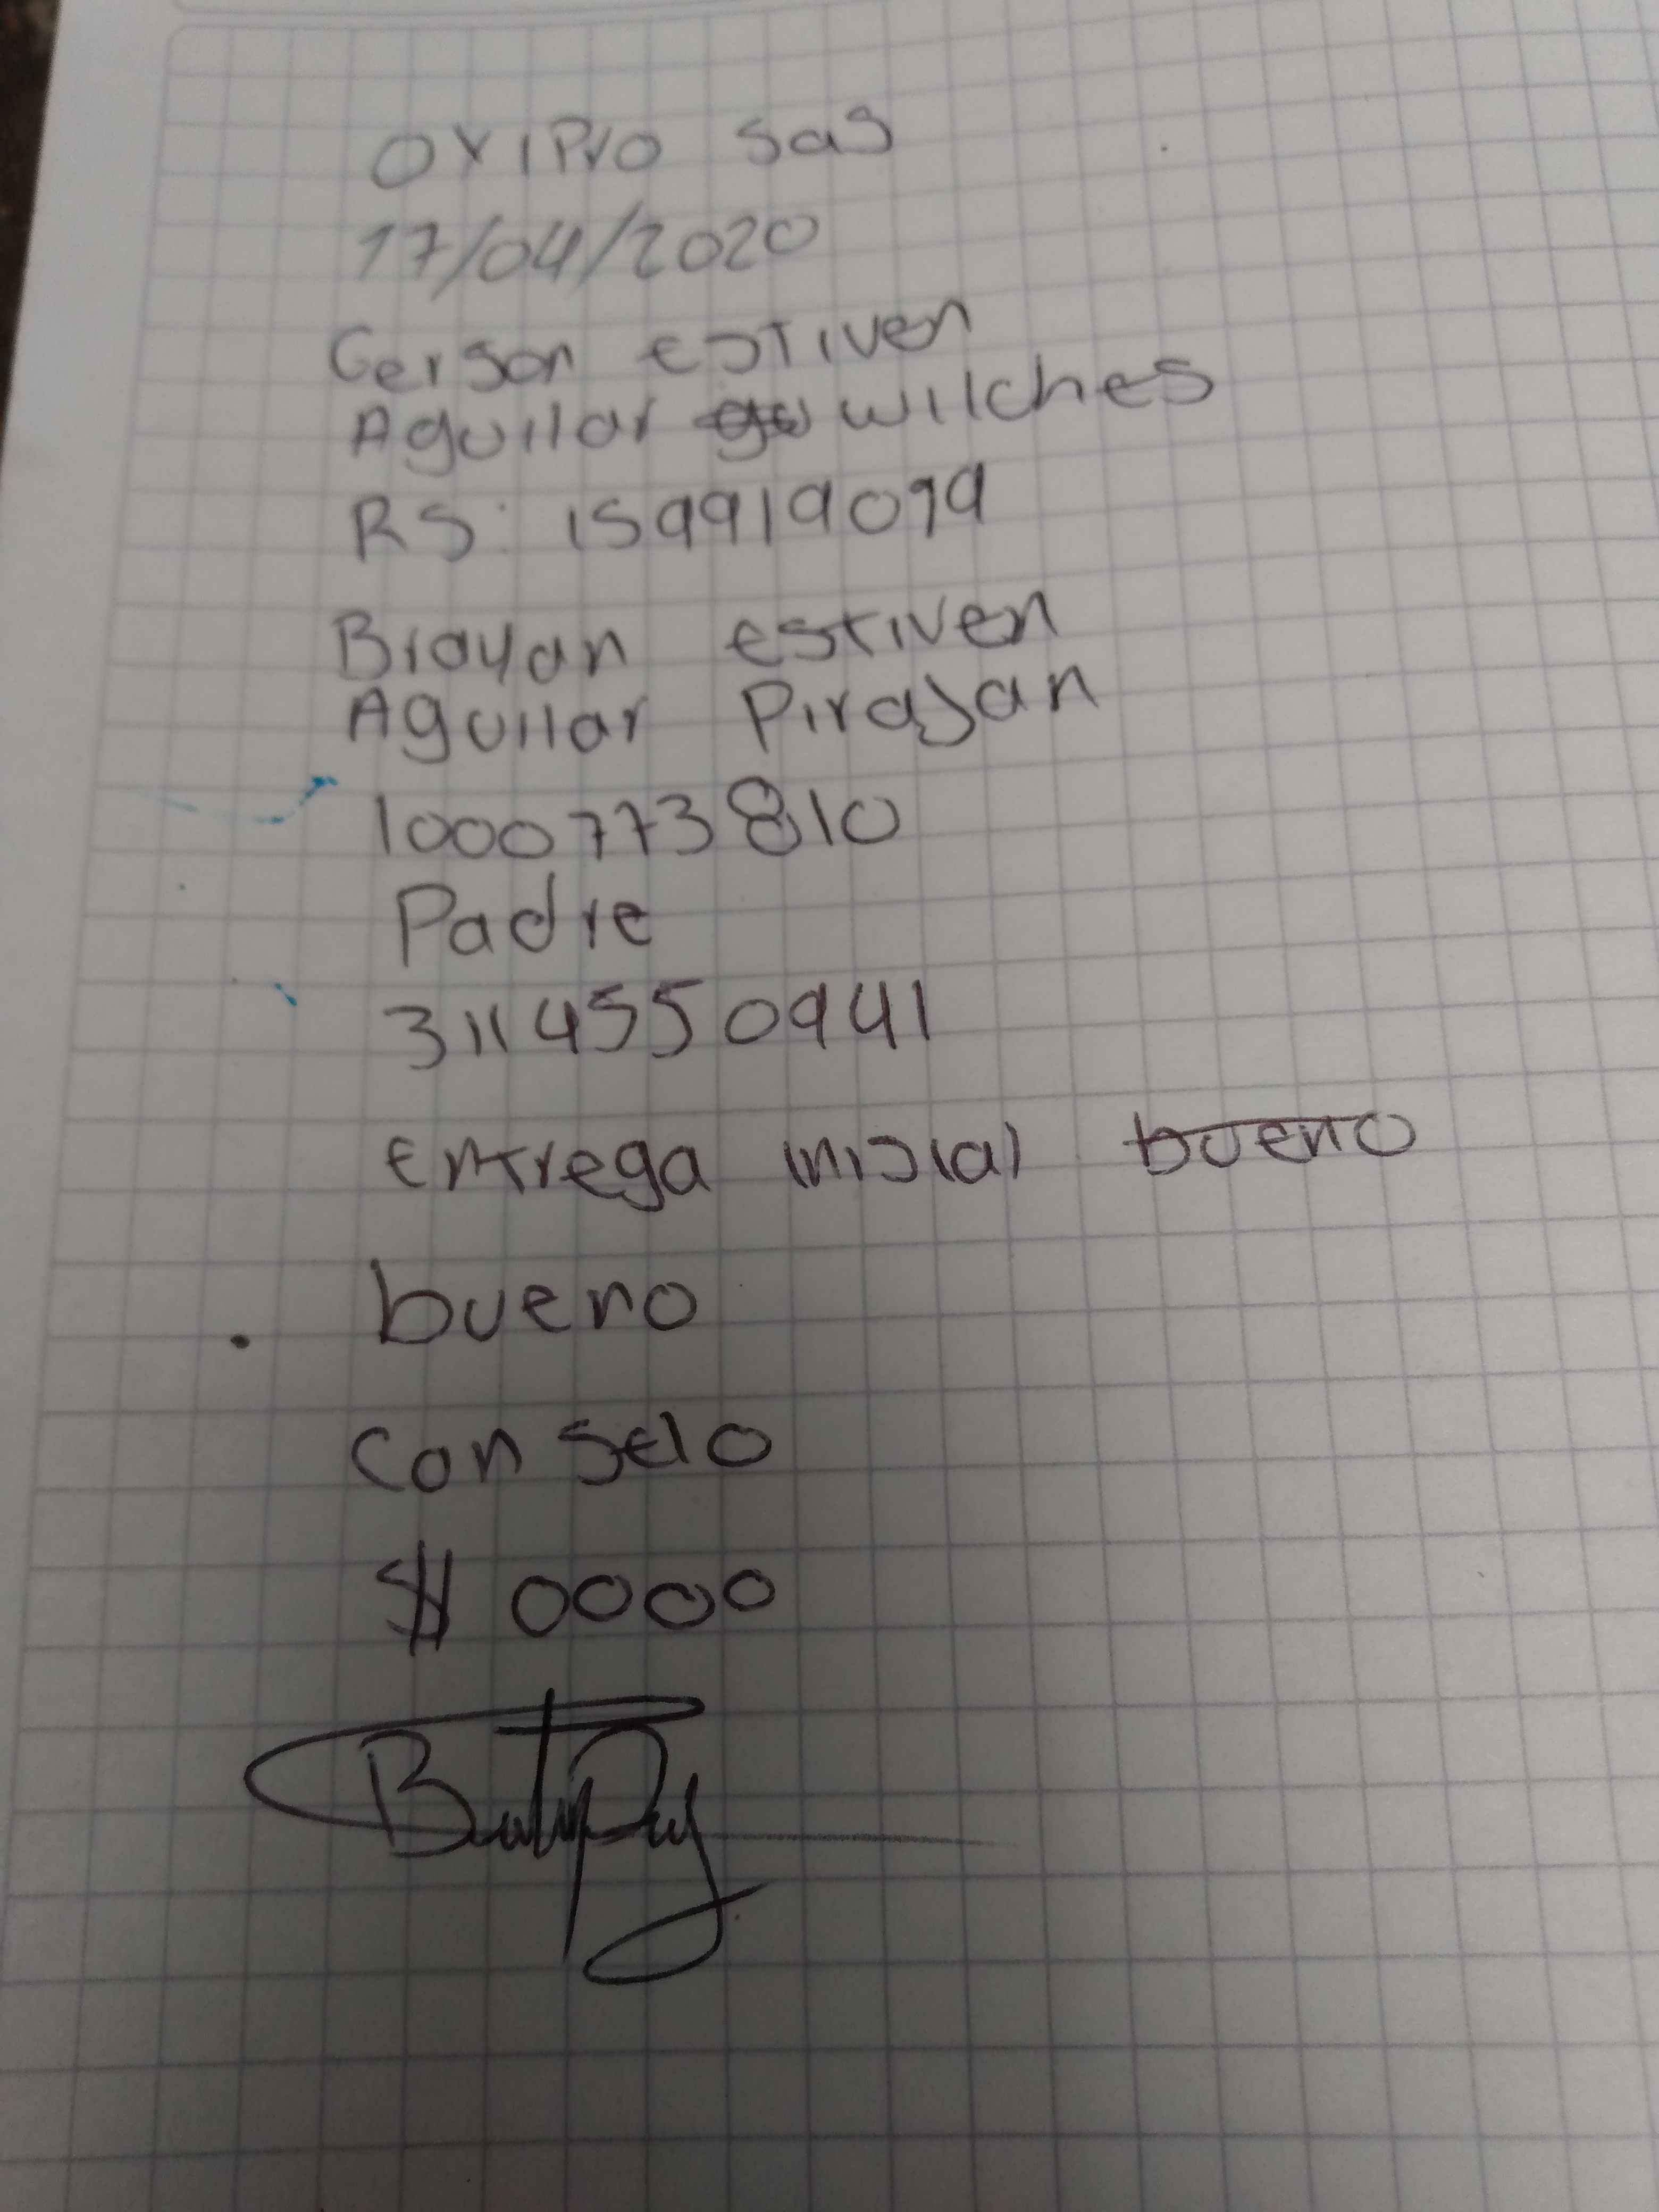 OXIPro sas
17/04/2020
Gerson estiven
Aguilar wilches
RS: 159919079
Brayan estiven
Aguilar Pirajan
1000773810
Padre
3114550941
entrega inicial bueno
bueno
con selo
$ 0000